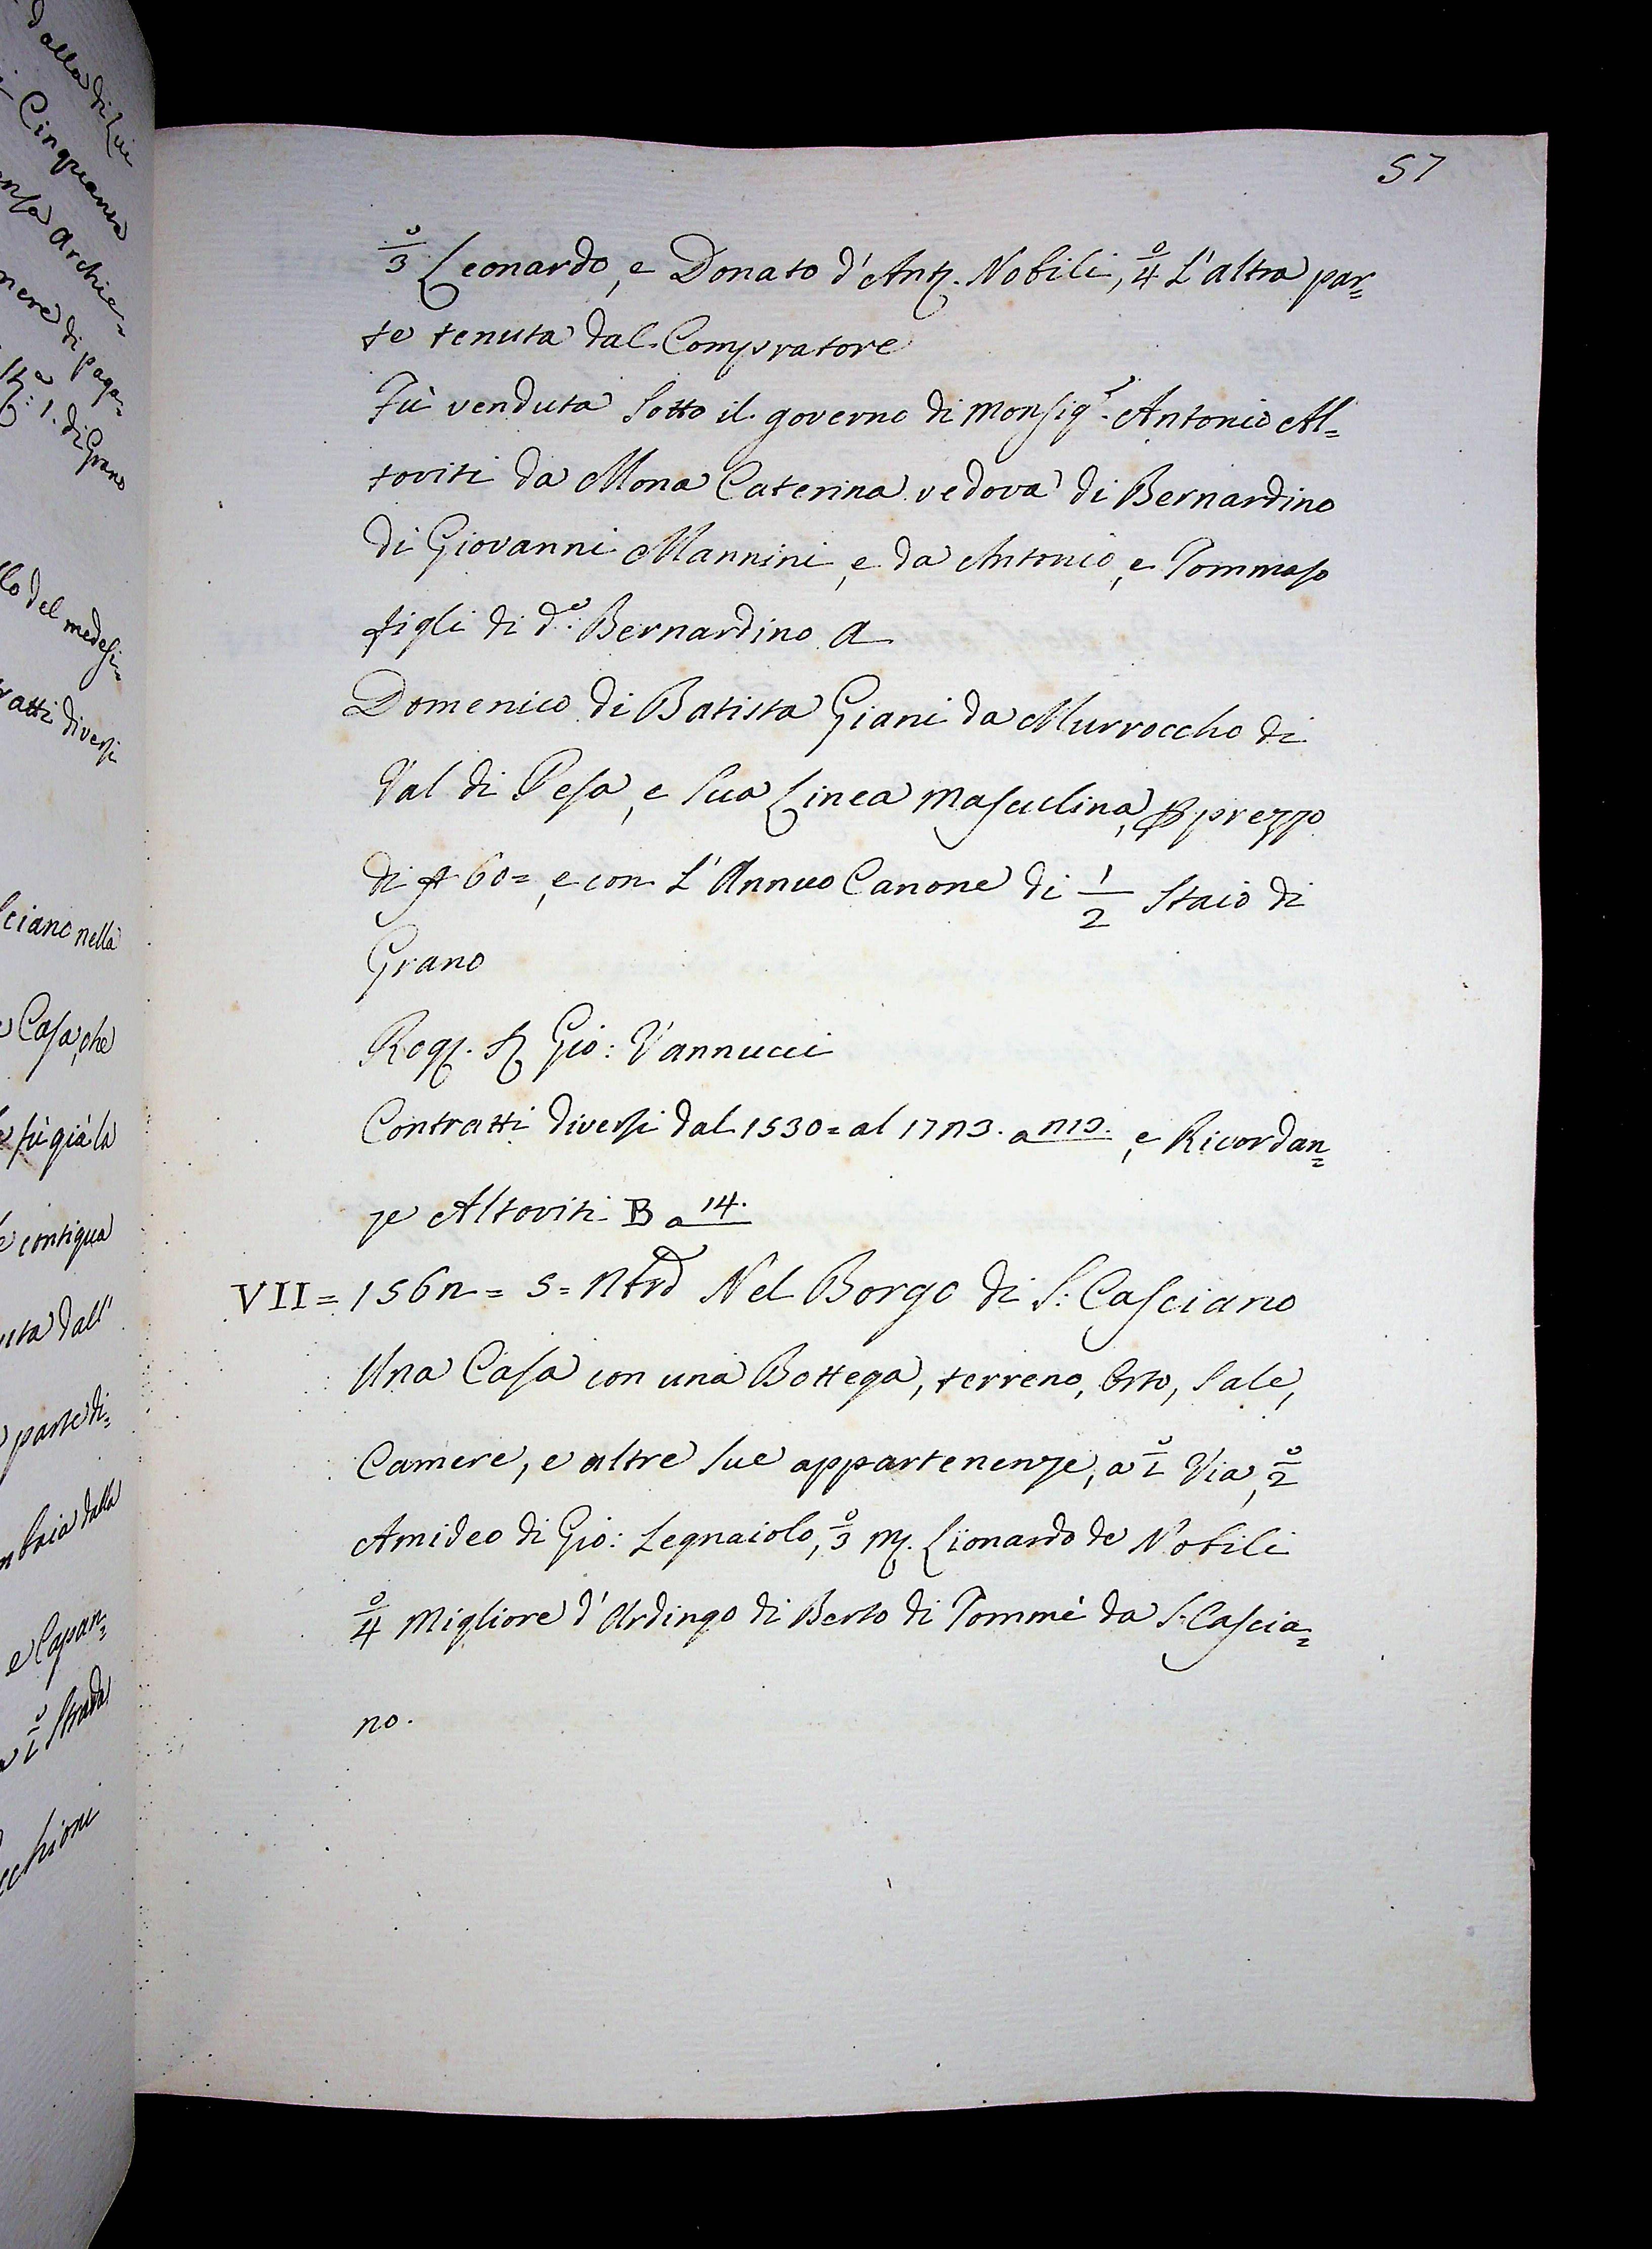 57
3° Leonardo, e Donato d'Ant. Nobili, 4° L'altra par=
te tenuta dal Compratore
Fù venduta Sotto il governo di Monsigr. Antonio Al=
toviti da Mona Caterina vedova di Bernardino
di Giovanni Mannini, e da Antonio, e Tommaso
figli di do. Bernardino a
Domenico di Batista Giani da Murroccho di
Val di Pesa, e Sua Linea Masculina, prezzo
di 60=, e con L'Annuo Canone di 1/2 Staio di
Grano
Rog. Gio: Vannucci
Contratti diversi dal 1530= al a, e Ricordan=
ze Altoviti B a 14.
VII= = 5= Nel Borgo di S: Casciano
Una Casa con una Bottega, terreno, Orto, Sale,
Camere, e altre Sue appartenenze, a 1° Via, 2°
Amideo di Gio: Legnaiolo, 3° M. Lionardo de Nobili
4° Migliore d'Ardingo di Berto di Tommè da S: Cascia=
no.
dalla di Lui
Cinquanta
ensa Archie=
nere di paga=
1. di Grano
llo del medesi=
ratti diversi
sciano nella
Casa, che
fù già la
e contigua
uta dall'
parte di=
dalla
e Capan=
1° Strada
cchioni